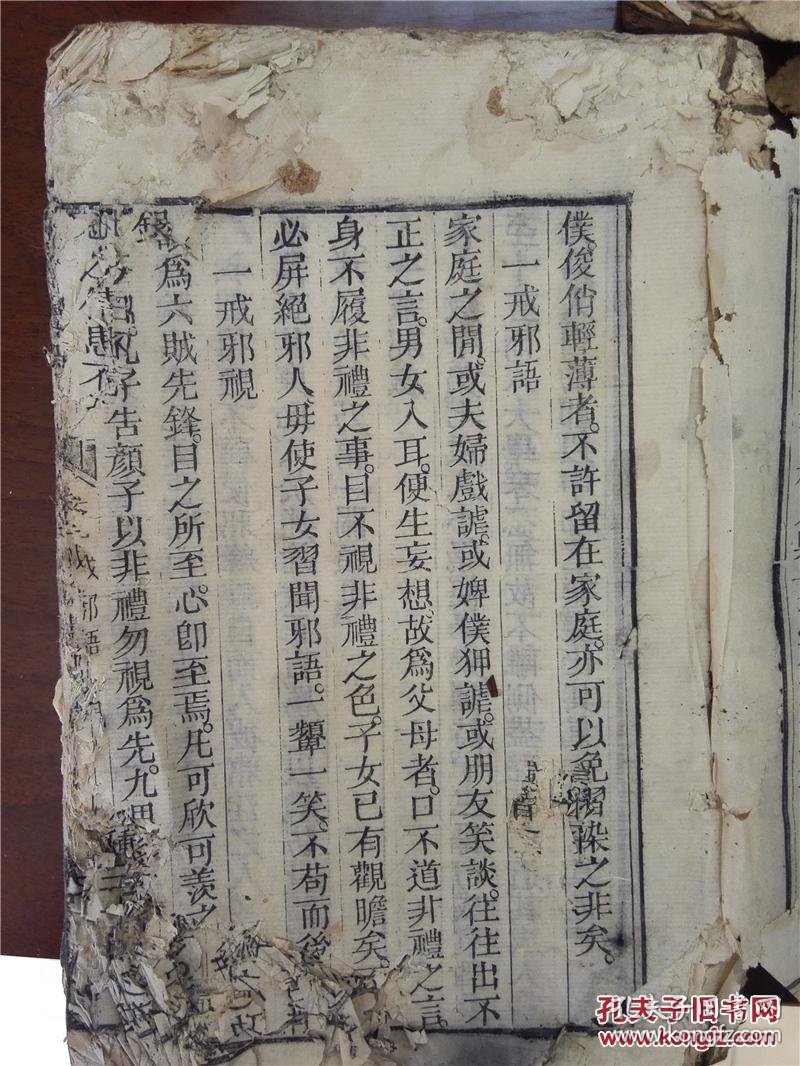 僕俊俏輕薄者。不許留在家庭。亦可以免習染之非矣。
一戒邪語
家庭之閒。或夫婦戲謔。或婢僕狎謔。或朋友笑談。往往出不
正之言。男女入耳。便生妄想。故爲父母者。口不道非禮之言。
身不履非禮之事。目不視非禮之色。子女已有觀瞻矣。
必屏絕邪人。毋使子女習聞邪語。一顰一笑。不苟而後
一戒邪視
爲六賊先鋒。目之所至。心卽至焉。凡可欣可羨之
孔子告顏子以非禮勿視爲先。九思
戒邪語
孔夫子旧书网
www.kongfz.com